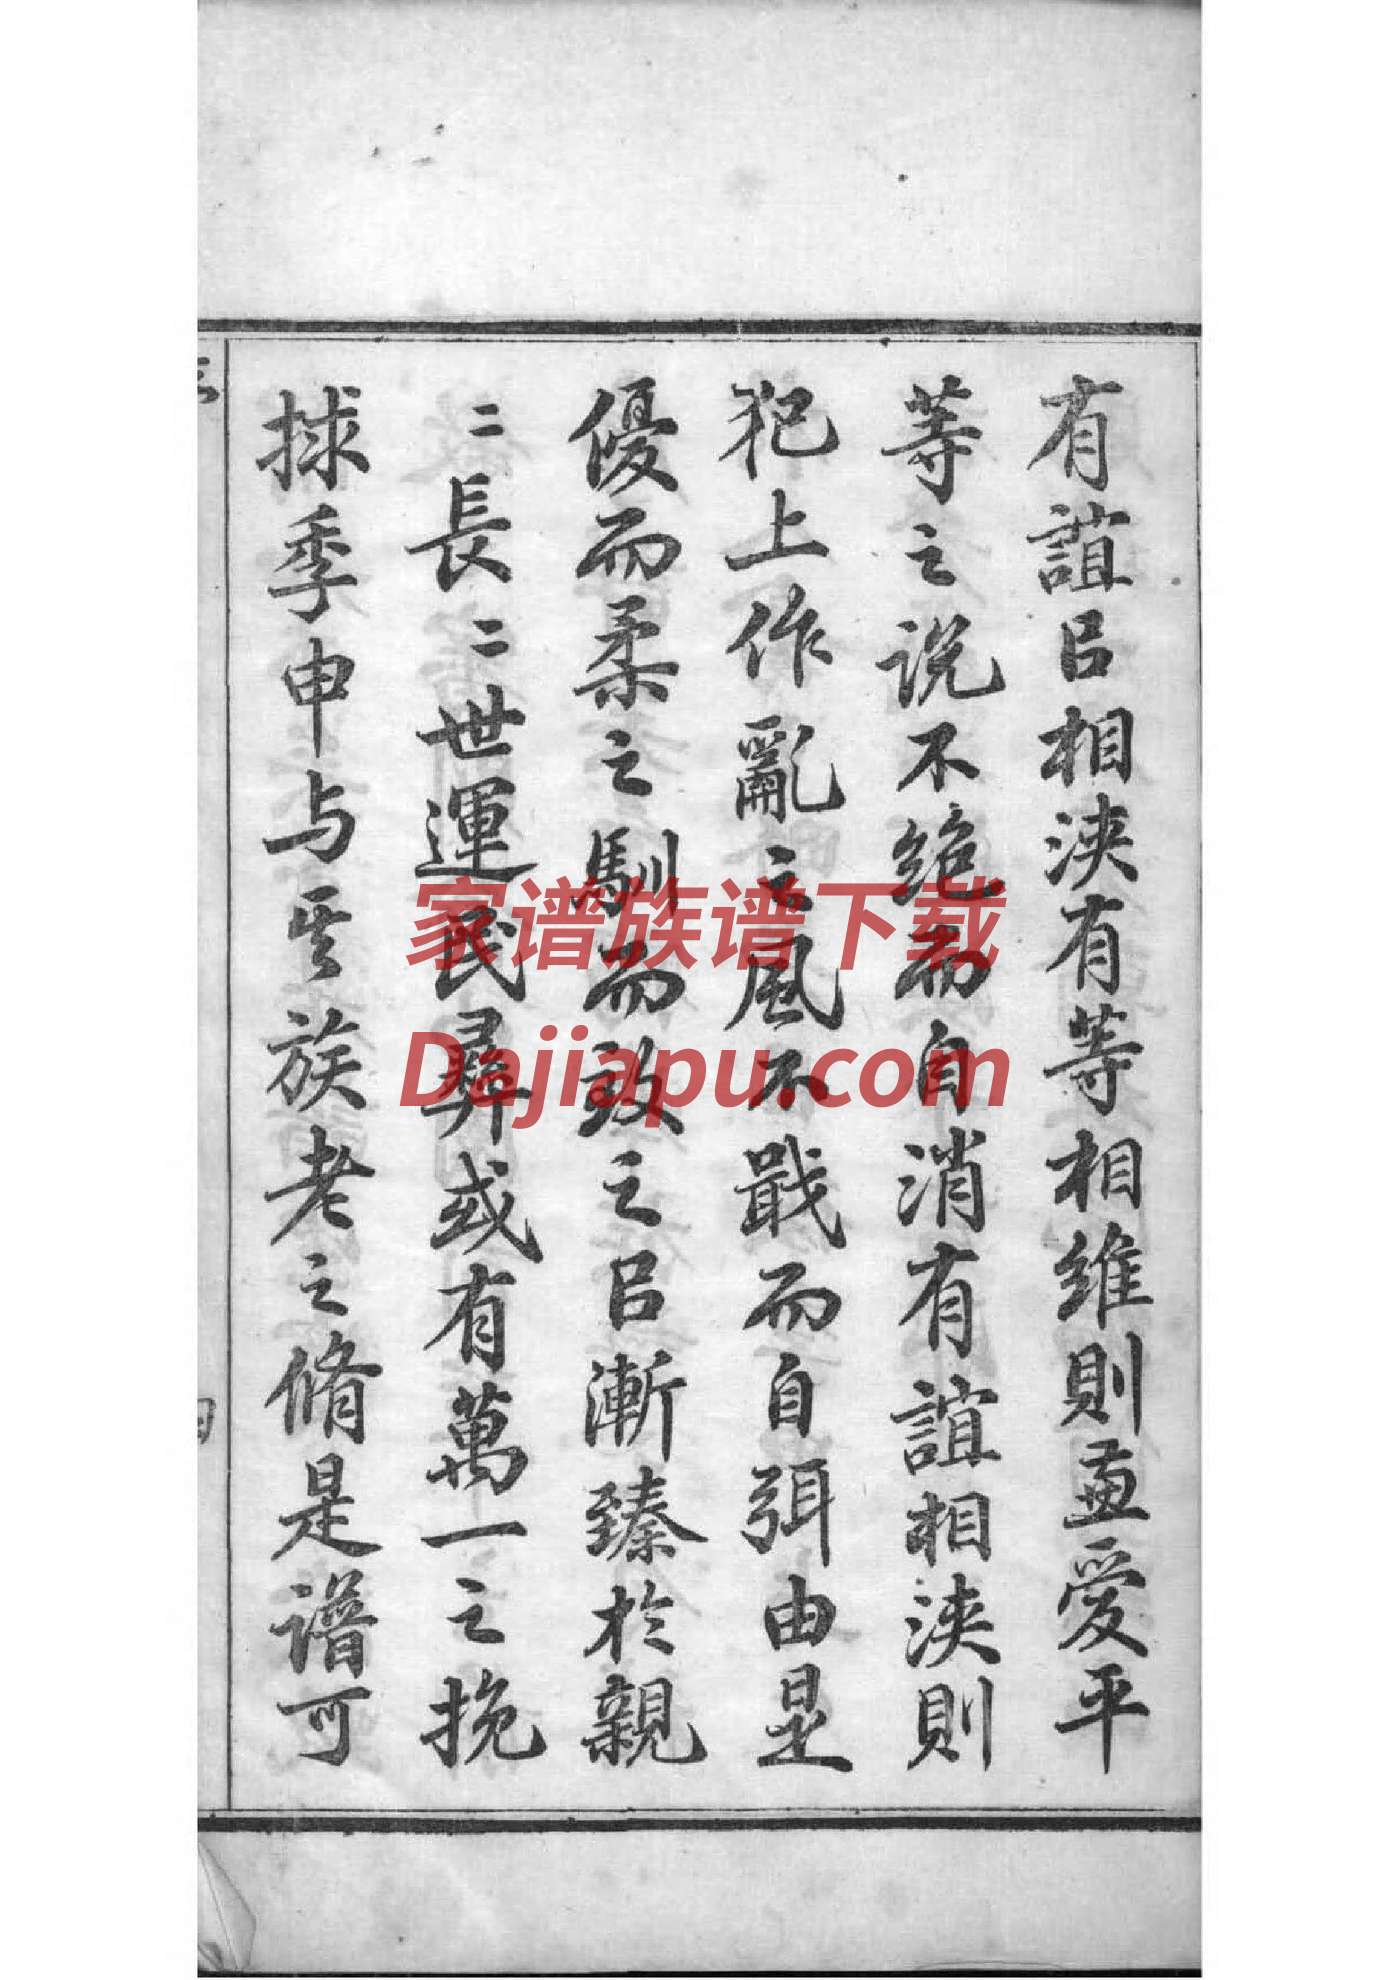 有誼㠯相浹有等相維則兼愛平
等之說不絶而自消有誼相浹則
犯上作亂之風不戢而自弭由是
優而柔之馴而致之㠯漸臻於親
〻長〻世運民彝或有萬一之挽
捄季申与其族老之脩是譜可
家谱族谱下载
Dajiapu.com